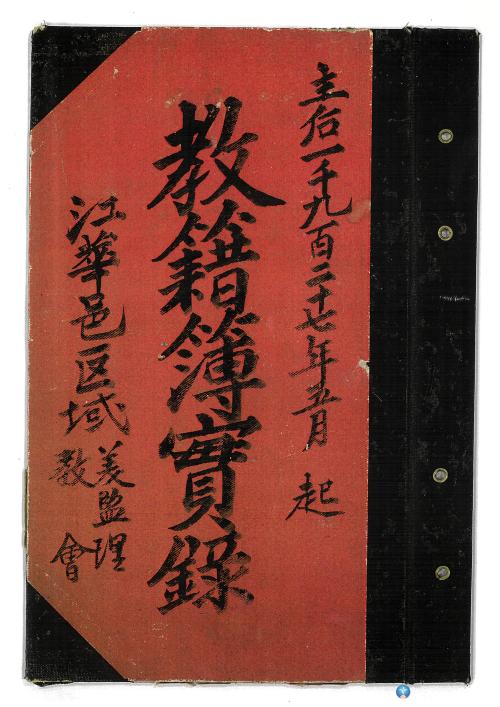 主后一千九百二十七年五月 起
教籍簿實錄
江華邑区域
美監理
教會